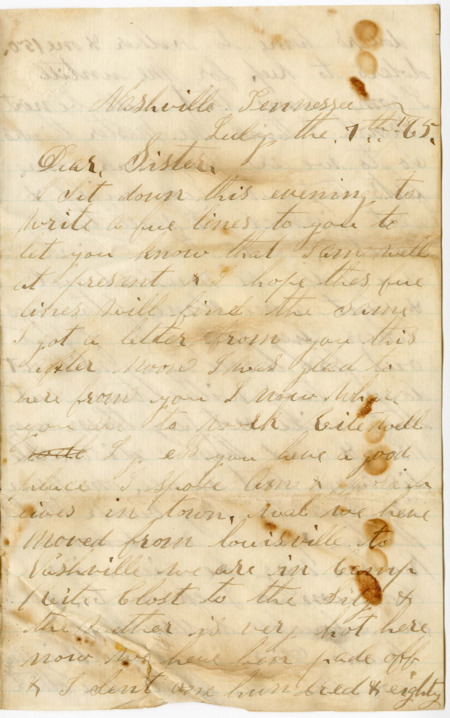 Nashville Tennessee
July, the, 7th, 65.
Dear, Sister,
I Sit down this evening to
write a fue lines to you to
let you know that I am well
at present & hope thes fue
lines will find the Same
I got a letter from you this
after noon I was glad to
here from you I now where
you are to work Cite well
I you have a good
place I
lives in town, well we have
moved from louisville to
Nashville we are in Camp
Cite Clost to the City &
the wether is very hot here
now we have ben pade off
& I Sent one hundred & eighty